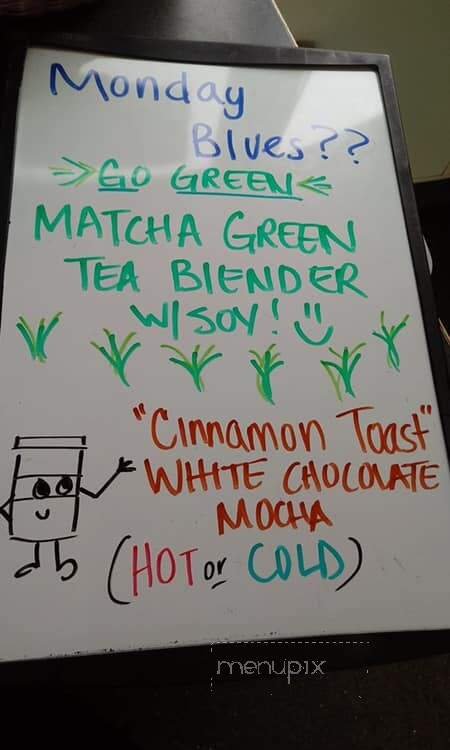 Monday
Blues??
GO GREEN
MATCHA GREEN
TEA BLENDER
W/ SOY!
"Cinnamon Toast"
WHITE CHOCOLATE
MOCHA
(HOT or COLD)
menupix